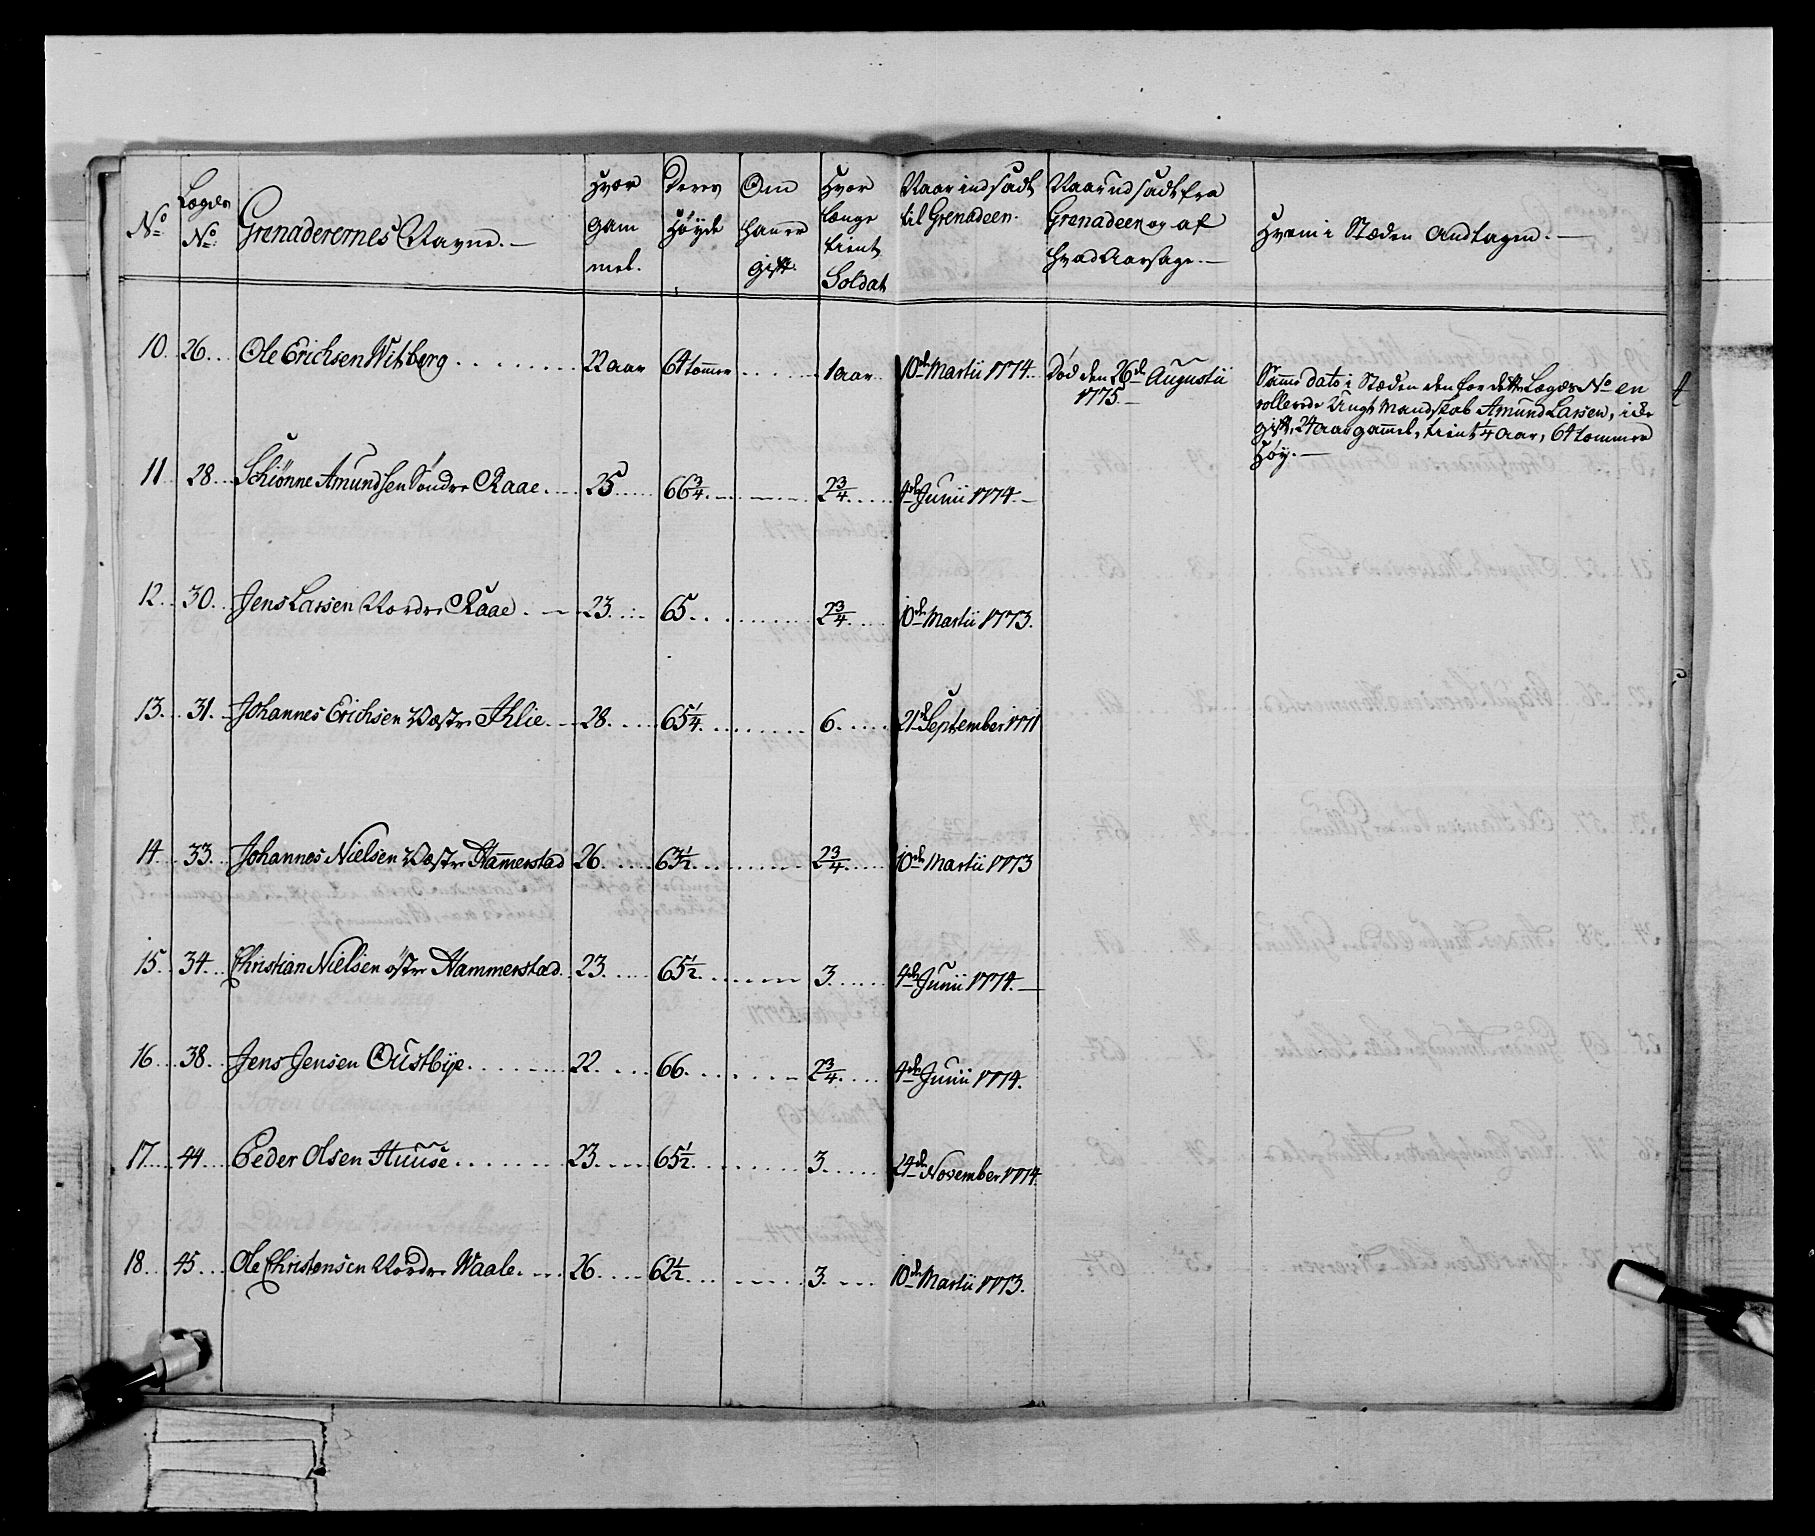 No Lægds No: Grenaderernes Navne. Hvor gammel. Deres Høyde Om han er gift. Hvor længe tient Soldat Naar indsadt til Grenadeer. Naar udsadt fra Grenadeer og af hvad Aarsage. Hvem i Stæden Andtagen.
10. 26. Ole Erichsen Witberg 22 aar 64 tommer 1 aar 10de Martii 1774. Död den 26de Augustii 1775.
Samme dato i Stæden den for dette Lægds No en
rollerede Ungt Mandskab Amund Larsen, icke
gift, 24 aar gammel, tient 1/4 aar, 64 tommer
Høy.
11 28. Schiönne Amundsen Söndre Raae. 25 66 3/4. 2 3/4. 4de Junii 1774.
12. 30. Jens Larsen Nordre Raae. 23. 65. 2 3/4. 10de Martii 1773.
13. 31. Johannes Erichsen Væstre Ihlie. 28. 65 1/4. 6. 21de September 1771
14. 33. Johannes Nielsen Væstre Hammerstad 26. 63 1/2. 2 3/4. 10de Martii 1773
15. 34. Christian Nielsen östre Hammerstad. 23. 65 1/2. 3. 4de Junii 1774.
16 38. Jens Jensen Oustbÿe. 22. 66. 2 3/4. 4de Junii 1774.
17. 44. Peder Olsen Huuse. 23. 65 1/2. 3. 24de November 1774.
18. 45. Ole Christensen Nordre Waale. 26. 62 1/2. 3. 10de Martii 1773.